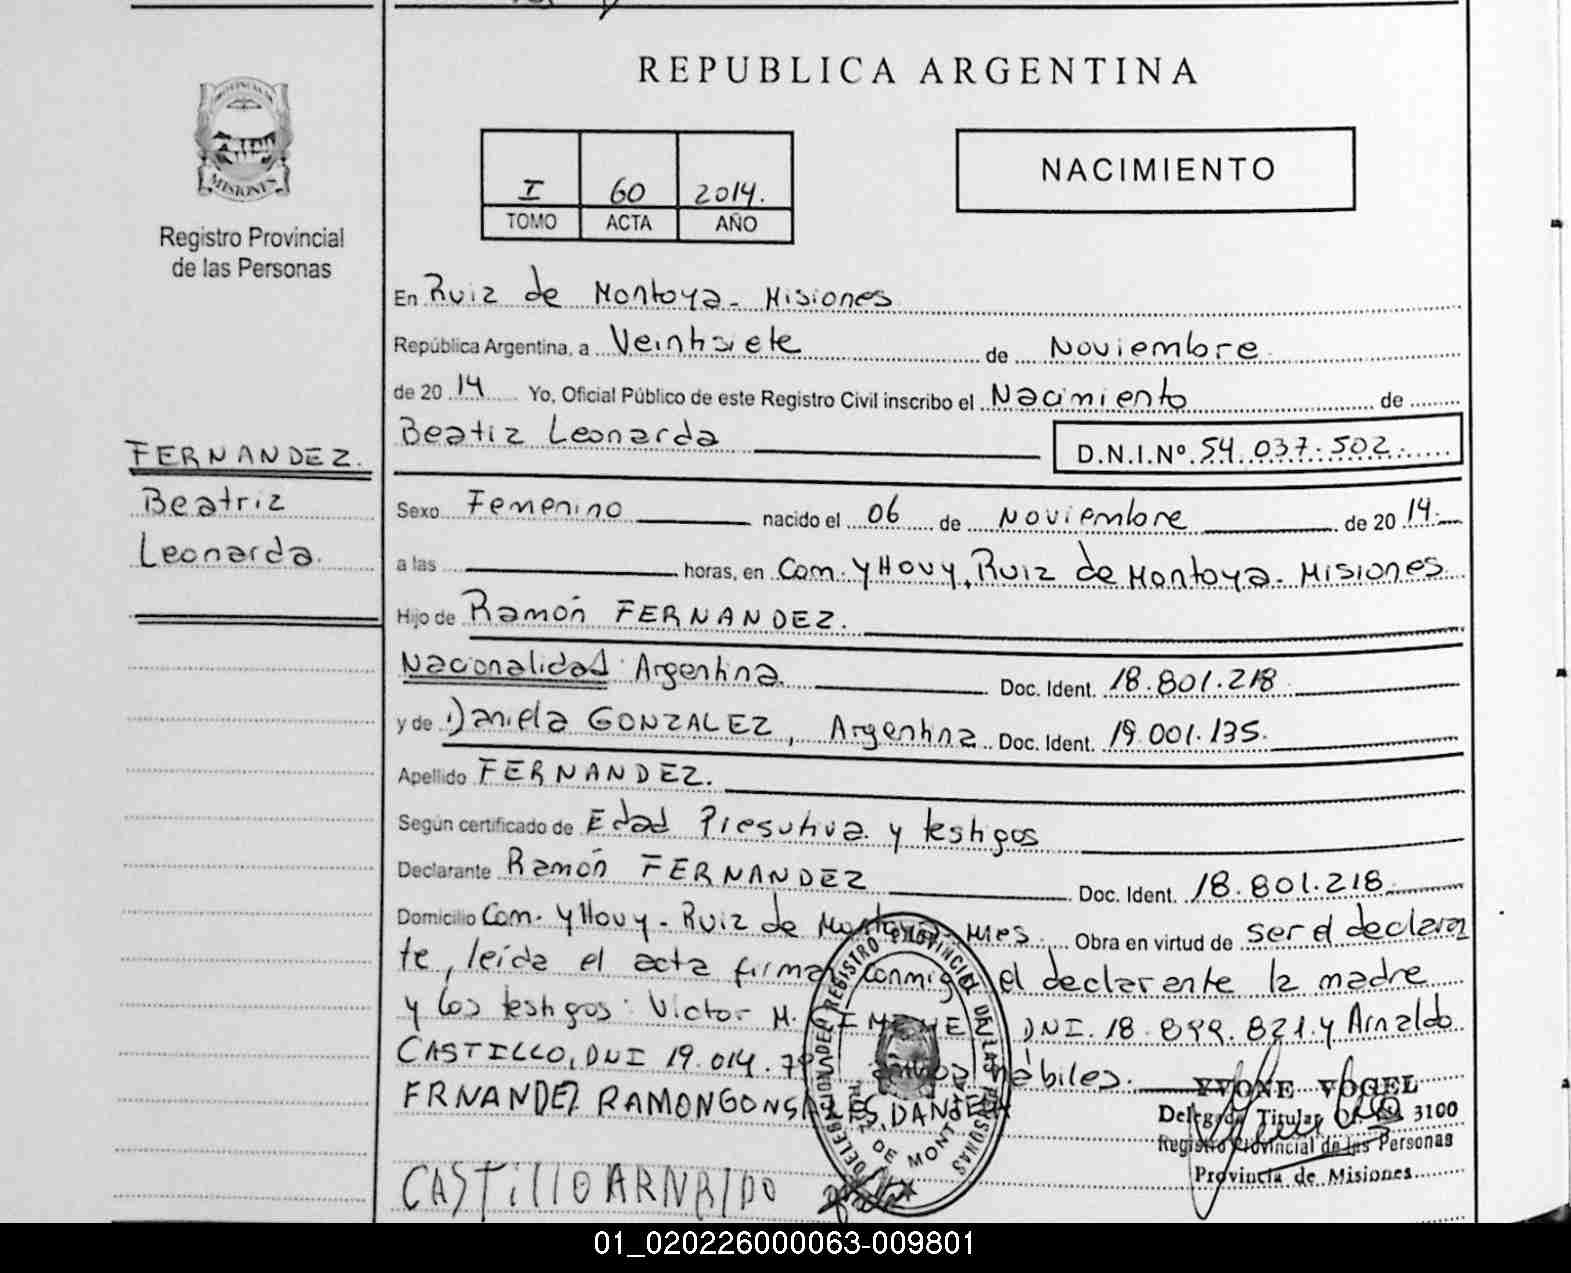 REPUBLICA ARGENTINA
PROVINCIA DE MISIONES
Registro Provincial
de las Personas
I 60 2014.
TOMO ACTA AÑO
NACIMIENTO
En Ruiz de Montoya - Misiones
República Argentina, a Veintisiete de Noviembre
de 20 14 Yo, Oficial Público de este Registro Civil inscribo el Nacimiento de
Beatiz Leonarda D.N.I.Nº 54.037.502
FERNANDEZ.
Beatriz
Leonarda.
Sexo Femenino nacido el 06 de Noviembre de 20 14.
a las horas, en Com. YHOVY, Ruiz de Montoya - Misiones
Hijo de Ramón FERNANDEZ.
Nacionalidad: Argentina. Doc. Ident. 18.801.218
y de Daniela GONZALEZ, Argentina Doc. Ident. 19.001.135.
Apellido FERNANDEZ.
Según certificado de Edad Presutiva y testigos
Declarante Ramón FERNANDEZ Doc. Ident. 18.801.218
Domicilio Com. YHovy - Ruiz de Montoya - Mnes. Obra en virtud de ser el declaran
te, leída el acta firman conmigo el declarante la madre
y los testigos: Victor M. DNI. 18.899.821 y Arnaldo
CASTILLO, DNI 19.014. hábiles.
FRNANDEZ RAMON GONSALES, DANIELA
CASTILLO ARNALDO
DELEGACION DEL REGISTRO PROVINCIAL DE LAS PERSONAS
RUIZ DE MONTOYA
YVONE VOGEL
Delegada Titular Of. 3100
Registro Provincial de las Personas
Provincia de Misiones
01_020226000063-009801